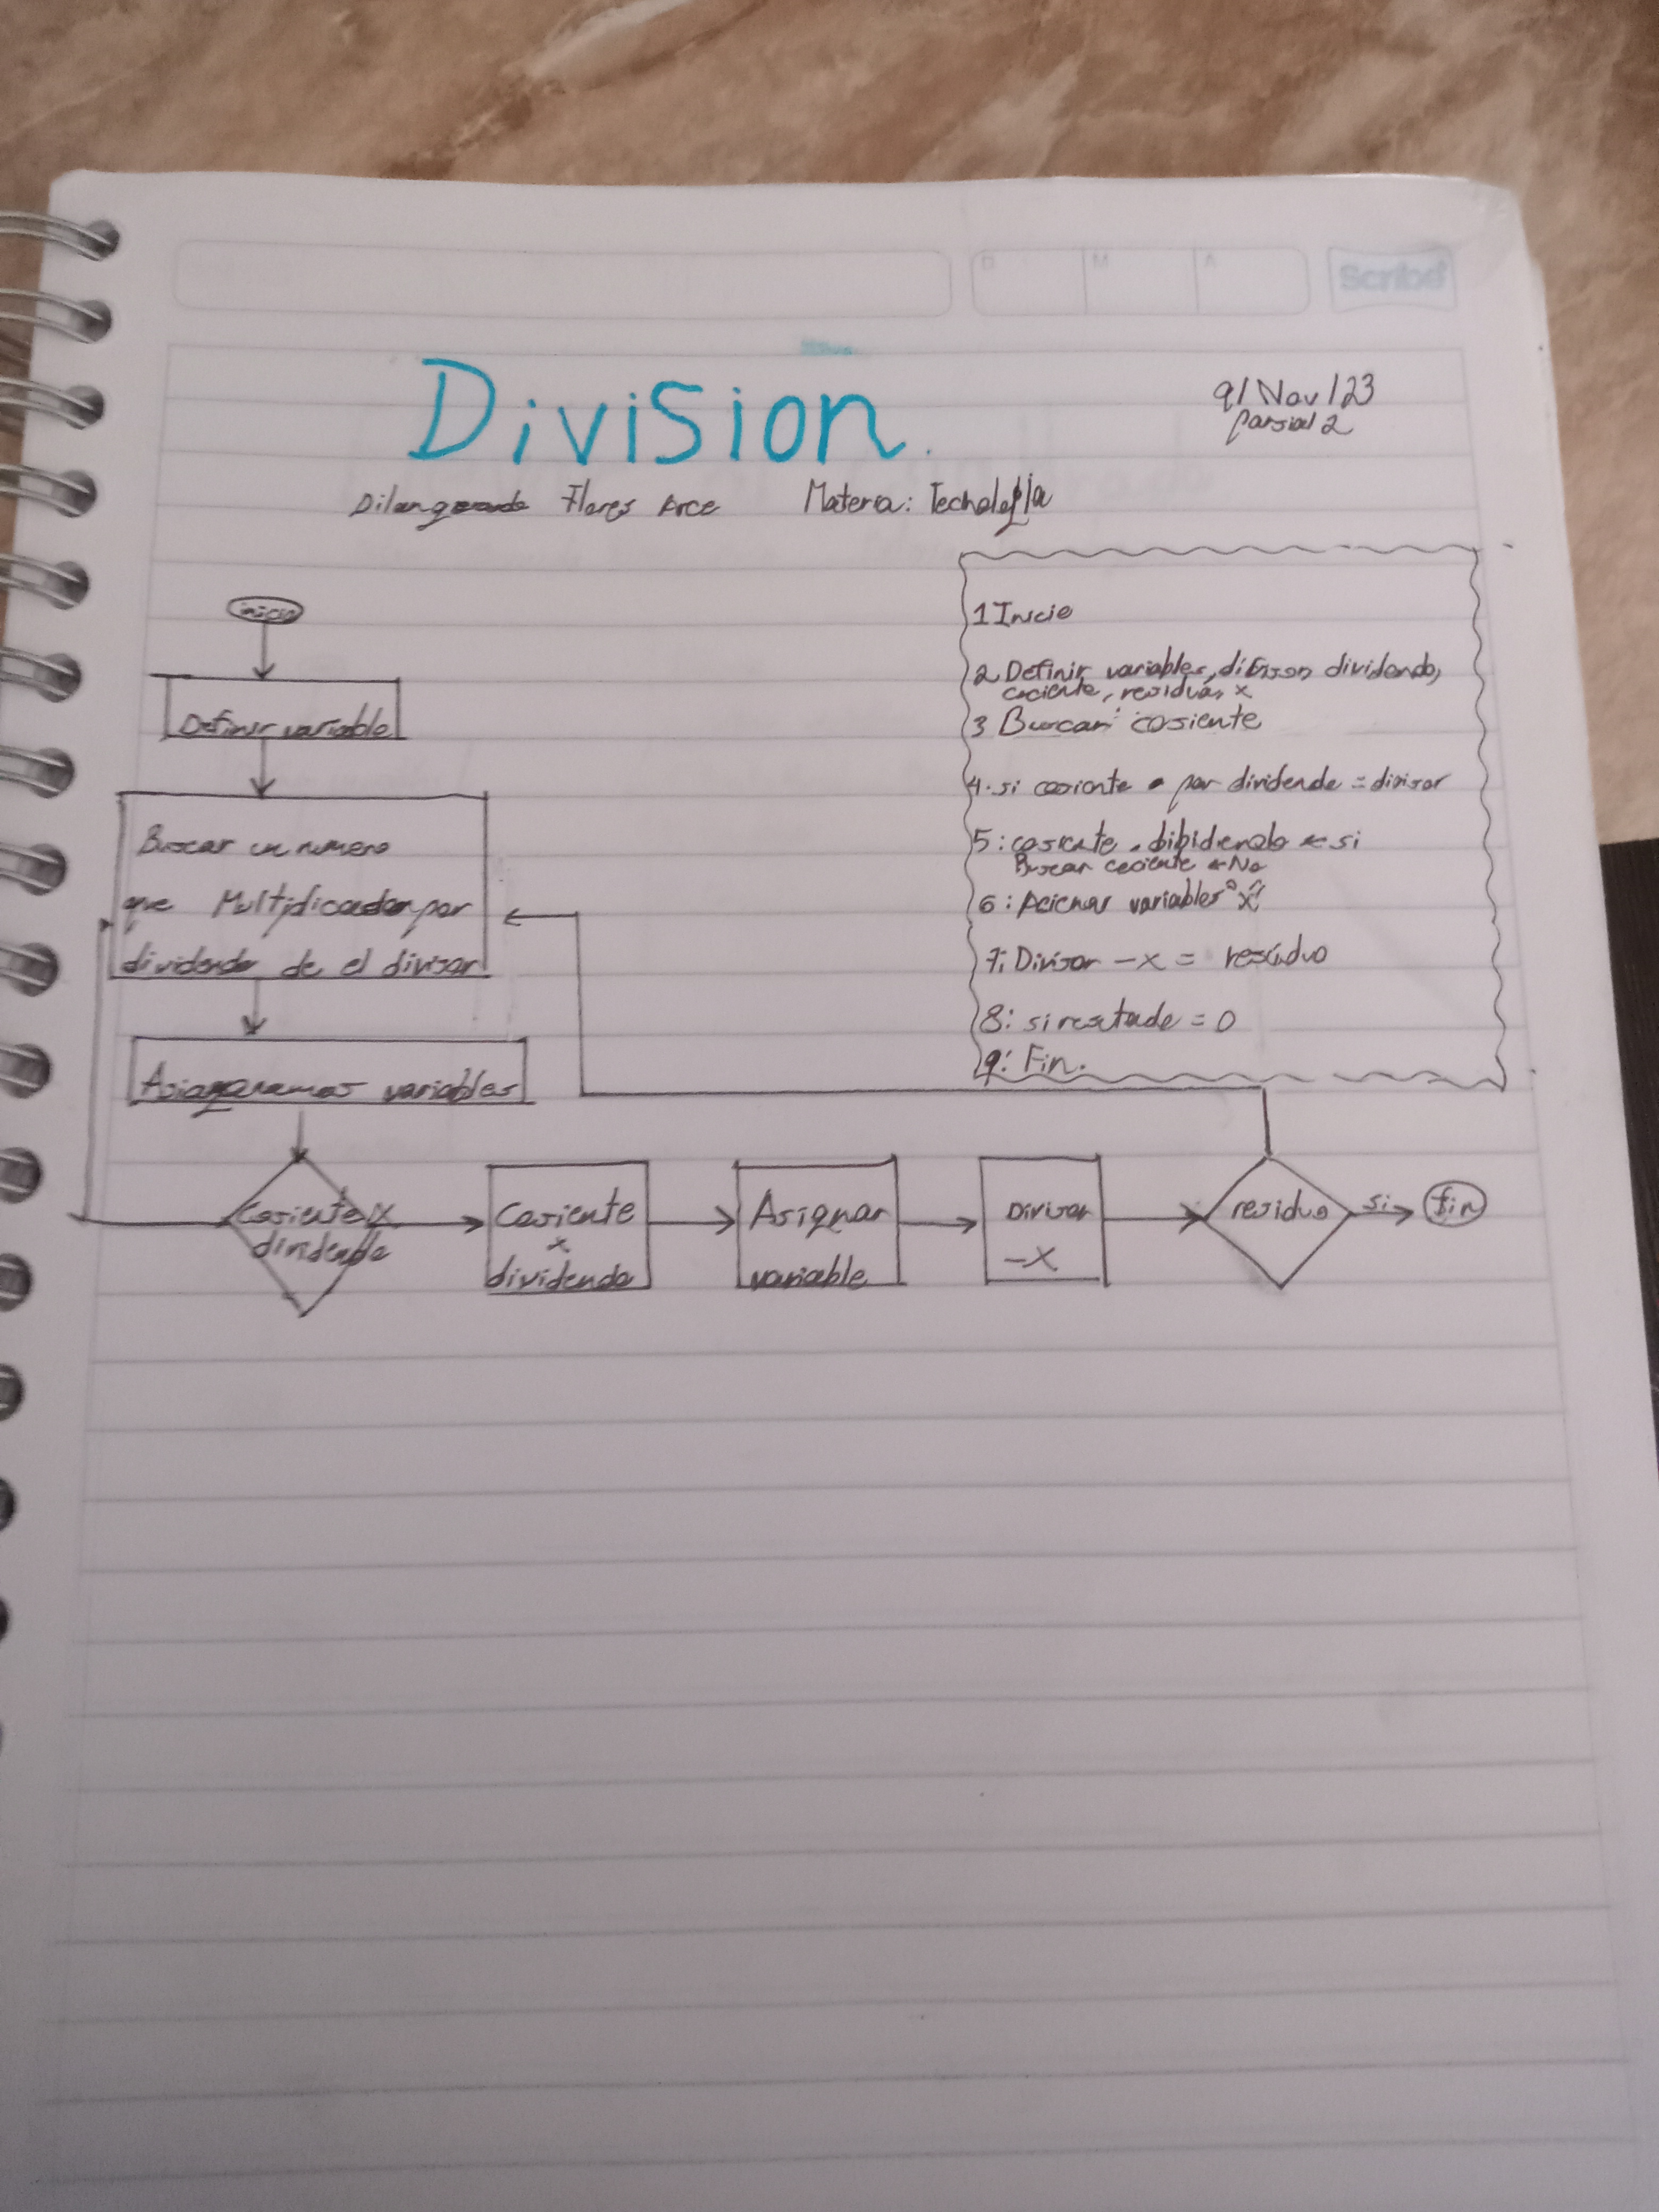 D M A Scribe
Division.
9/Nov/23
Parsial 2
Flores Arce Materia:
inicio
Definir variable
Buscar un numero
que por
dividendo de el divisor
variables
Cosiente x
dividendo
Cosiente
x
dividendo
Asignar
variable
Divisor
-X
residuo
si
fin
1 Inicio
2 Definir variables, dividendo,
cociente, residuo, x
3 Buscar cosiente
4. si cosiente • por dividende = divisor
5: cosiente . ← si
Buscar cociente ← No
6: variables "x"
7: Divisor - x = residuo
8: si = 0
9: Fin.